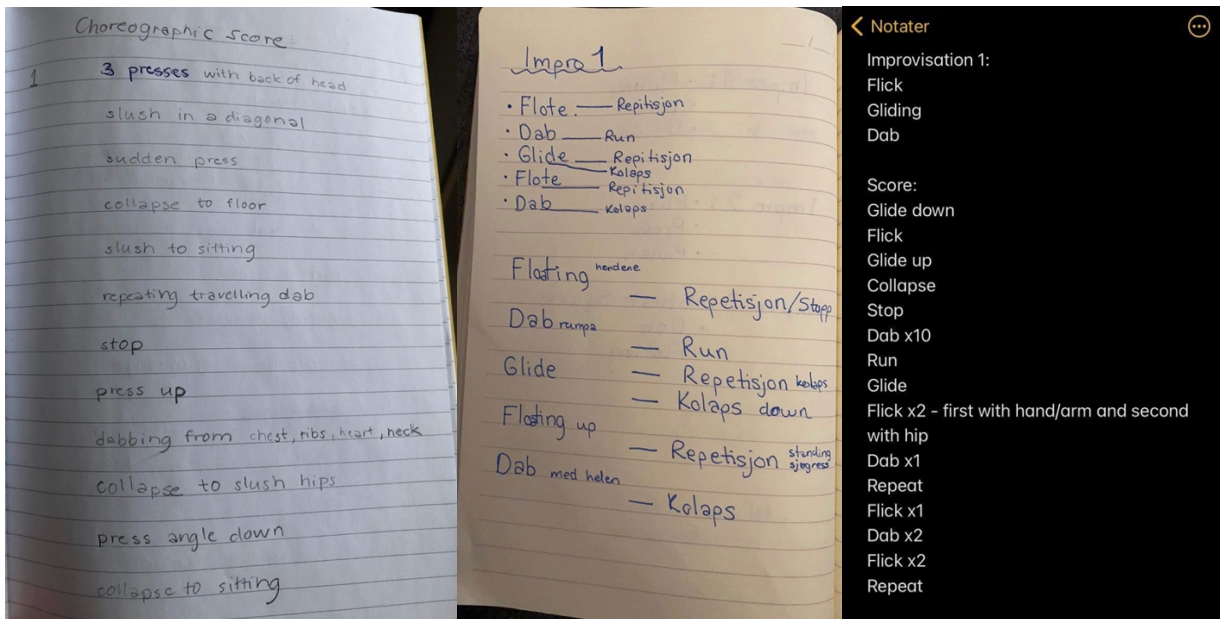 Choreographic Score
1 3 presses with back of head
slush in a diagonal
sudden press
collapse to floor
slush to sitting
repeating travelling dab
stop
press up
dabbing from chest, ribs, heart, neck
collapse to slush hips
press angle down
collapse to sitting
Impro 1
• Flote. — Repitisjon
• Dab — Run
• Glide — Repitisjon
— Kolaps
• Flote — Repitisjon
• Dab — Kolaps
Floating hendene
— Repetisjon/Stopp
Dab rumpa
— Run
Glide — Repetisjon kolaps
— Kolaps down
Floating up
— Repetisjon standing sjøgress
Dab med helen
— Kolaps
Notater
Improvisation 1:
Flick
Gliding
Dab
Score:
Glide down
Flick
Glide up
Collapse
Stop
Dab x10
Run
Glide
Flick x2 - first with hand/arm and second
with hip
Dab x1
Repeat
Flick x1
Dab x2
Flick x2
Repeat